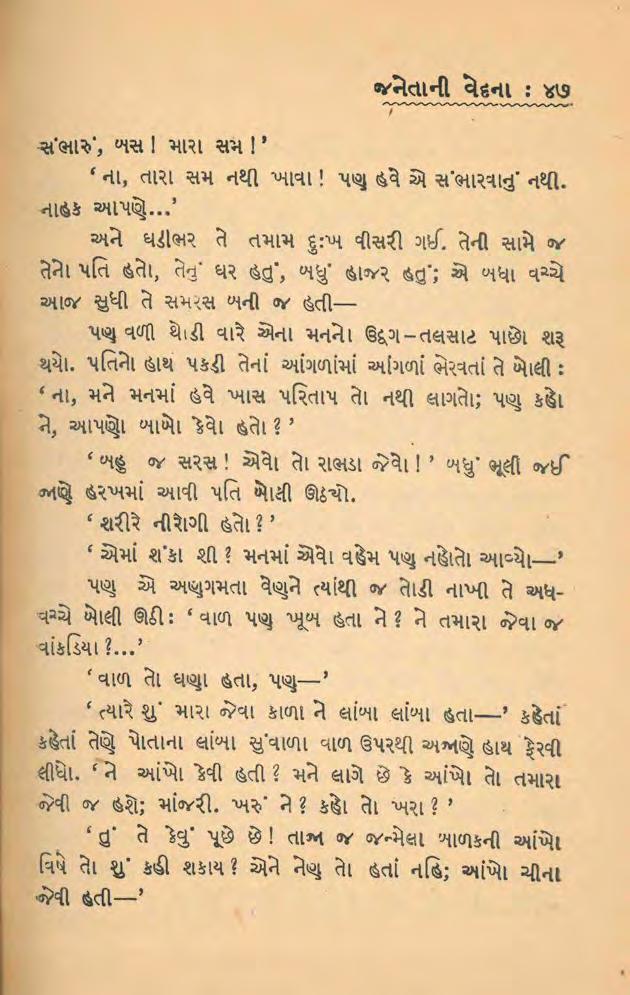 જનેતાની વેદના : ૪૭
સંભારું, બસ! મારા સમ!’
‘ના, તારા સમ નથી ખાવા! પણ હવે એ સંભારવાનું નથી.
નાહક આપણે...’
અને ઘડીભર તે તમામ દુઃખ વીસરી ગઈ. તેની સામે જ
તેનો પતિ હતો, તેનું ઘર હતું, બધું હાજર હતું; એ બધા વચ્ચે
આજ સુધી તે સમરસ બની જ હતી—
પણ વળી થોડી વારે એના મનનો ઉદ્વગ–તલસાટ પાછો શરૂ
થયો. પતિનો હાથ પકડી તેનાં આંગળાંમાં આંગળાં ભેરવતાં તે બોલી :
‘ના, મને મનમાં હવે ખાસ પરિતાપ તો નથી લાગતો; પણ કહો
ને, આપણો બાબો કેવો હતો ?’
‘બહુ જ સરસ! એવો તો રાભડા જેવો!’ બધું ભૂલી જઈ
જાણે હરખમાં આવી પતિ બોલી ઊઠ્યો.
‘શરીરે નીરોગી હતો ?’
‘એમાં શંકા શી ? મનમાં એવો વહેમ પણ નહોતો આવ્યો—’
પણ એ અણગમતા વેણને ત્યાંથી જ તોડી નાખી તે અધ-
વચ્ચે બોલી ઊઠી : ‘વાળ પણ ખૂબ હતા ને ? ને તમારા જેવા જ
વાંકડિયા ?...’
‘વાળ તો ઘણા હતા, પણ—’
‘ત્યારે શું મારા જેવા કાળા ને લાંબા લાંબા હતા—’ કહેતાં
કહેતાં તેણે પોતાના લાંબા સુંવાળા વાળ ઉપરથી અજાણે હાથ ફેરવી
લીધો. ‘ને આંખો કેવી હતી ? મને લાગે છે કે આંખો તો તમારા
જેવી જ હશે; માંજરી. ખરું ને ? કહો તો ખરા ?’
‘તું તે કેવું પૂછે છે! તાજા જ જન્મેલા બાળકની આંખો
વિષે તો શું કહી શકાય ? એને નેણ તો હતાં નહિ; આંખો ચીના
જેવી હતી—’